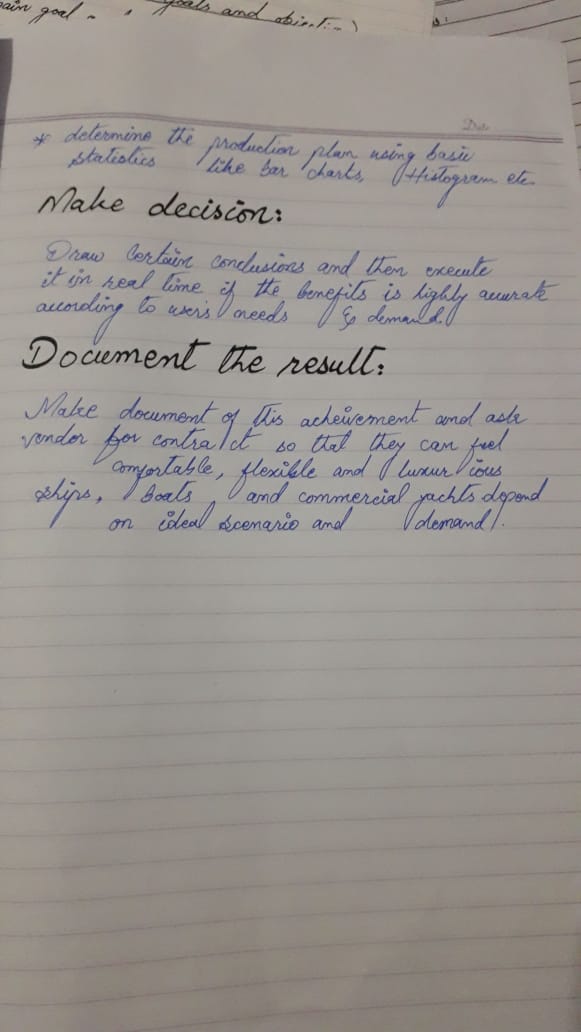 ain goal
goals and objective)
Date
* determine the production plan using basic
statistics like bar charts, Histogram etc
Make decision:
Draw Certain conclusions and then execute
it in real time if the benefits is highly accurate
according to user's needs & demand.
Document the result:
Make document of this acheivement and ask
vendor for contract so that they can feel
comfortable, flexible and luxurious
ships, Boats and commercial yachts depend
on ideal scenario and demand.